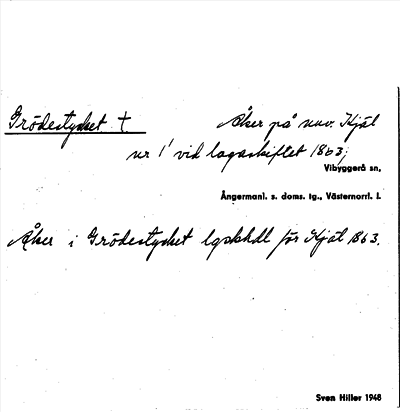 Grödestycket †. Åker på nuv. Kjäl
nr 1 vid lagaskiftet 1863;
Vibyggerå sn,
Ångermanl. s. doms. tg., Västernorrl. l.
Åker i Grödestycket lgskhdl för Kjäl 1863.
Sven Hiller 1948